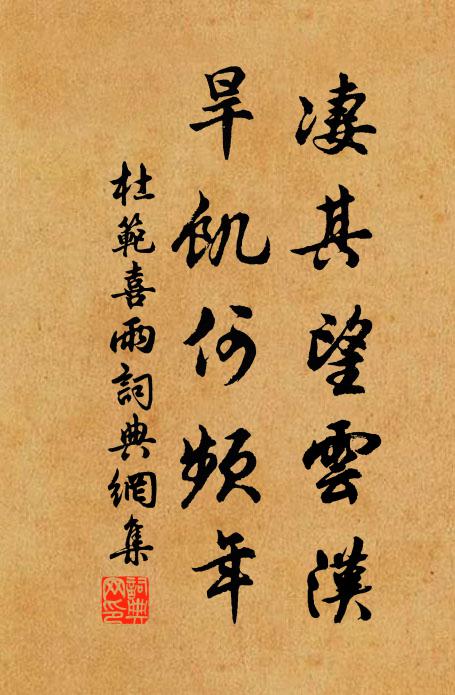 凄其望雲漢
旱飢何頻年
杜範喜雨詞典網集
詞典網印